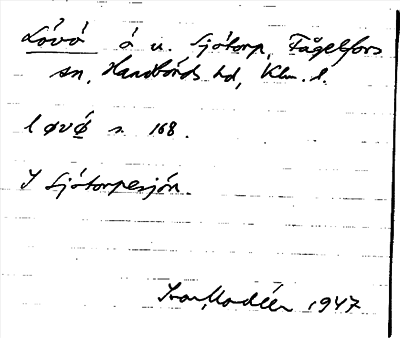 Lövö ö u. Sjötorp, Fågelfors
sn, Handbörds hd, Klm. l.
løvø̀ s. 168.
I Sjötorpesjön.
Ivar Modéer 1947